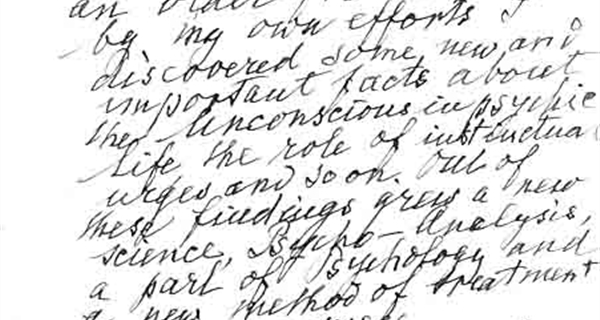 an older
by my own efforts I
discovered some new and
important facts about
the Unconscious in psychic
life the role of instinctual
urges and so on. Out of
these findings grew a new
science, Psycho-Analysis,
a part of psychology and
a new method of treatment